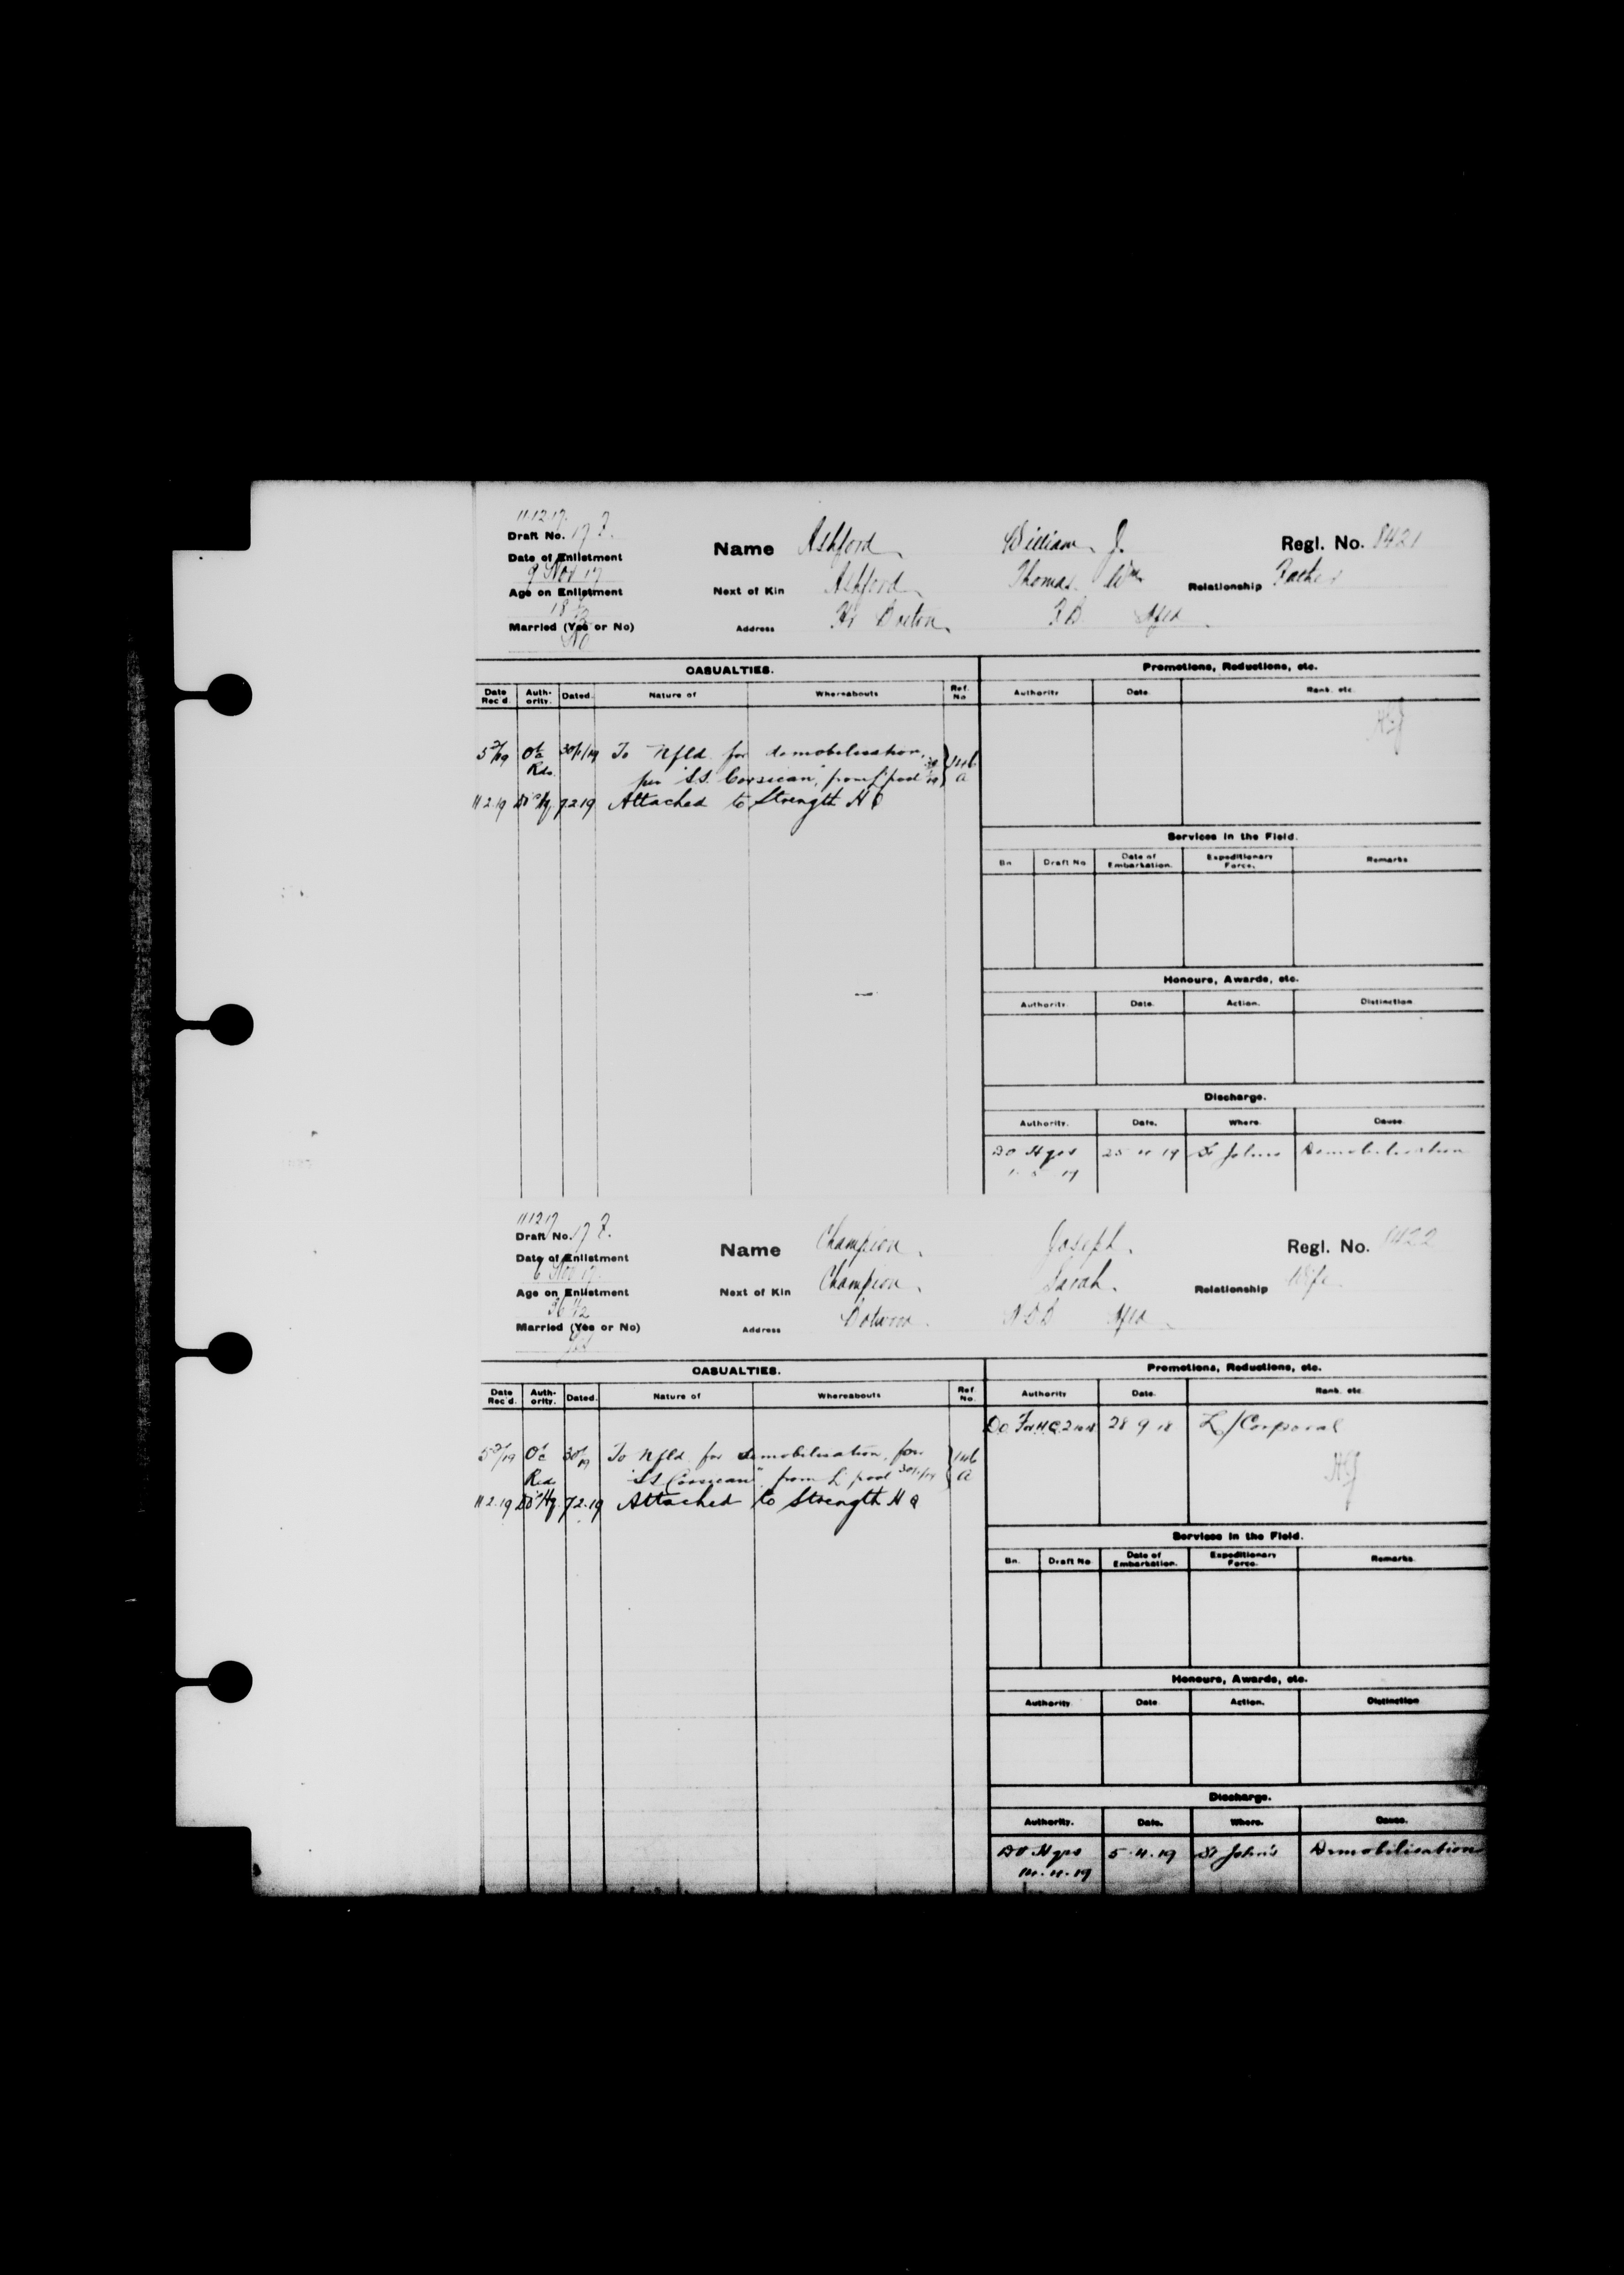 11.12.17.
Draft No. 17 F.
Date of Enlistment
9 Nov 17
Age on Enlistment
18
Married (Yes or No)
No
Name Ashford William J. Regl. No. 8421
Next of Kin Ashford Thomas Wm Relationship Father
Address Hr Nfld
CASUALTIES.
Promotions, Reductions, etc.
Date Rec'd. Auth-ority. Dated. Nature of Whereabouts Ref. No
Authority Date. Rank. etc.
5/2/19 O/c Rds. 30/1/19 To Nfld. for demobilisation,
per "S.S. Corsican", from L'pool 146 A
11.2.19 DO Hq. 7.2.19 Attached to Strength HQ
Services in the Field.
Bn Draft No Date of Embarkation. Expeditionary Force. Remarks
Honours, Awards, etc.
Authority. Date. Action. Distinction
Discharge.
Authority. Date. Where. Cause.
DO Hqrs 19 St Johns Demobilisation
11 12 17
Draft No. 17 F.
Date of Enlistment
6 Nov 17.
Age on Enlistment
Married (Yes or No)
Yes
Name Champion, Joseph. Regl. No. 8422
Next of Kin Champion, Sarah. Relationship Wife
Address Botwood. N D B Nfld
CASUALTIES.
Promotions, Reductions, etc.
Date Rec'd. Auth-ority. Dated. Nature of Whereabouts Ref. No.
Authority Date. Rank. etc.
28 9 18 L/Corporal
5/2/19 O/c Rds 30/1/19 To Nfld for demobilisation, per
"SS Corsican", from L'pool 30/1/19 146 A
11.2.19 DO Hq. 7.2.19 Attached to Strength HQ
Services in the Field.
Bn. Draft No Date of Embarkation. Expeditionary Force. Remarks.
Honours, Awards, etc.
Authority Date Action. Distinction
Discharge.
Authority. Date. Where. Cause.
DO Hqrs 5.4.19 St John's Demobilisation
14.4.19